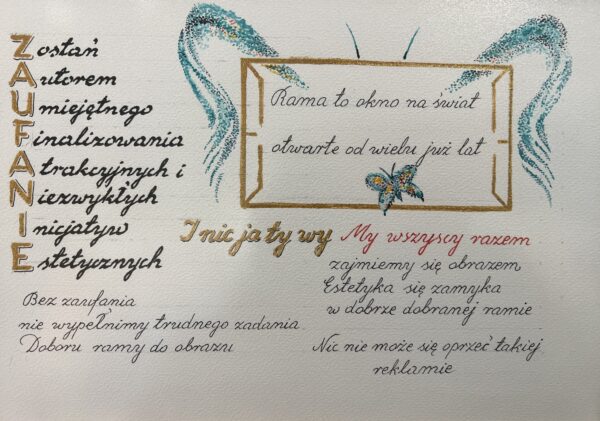 Zostań
Autorem
Umiejętnego
Finalizowania
Atrakcyjnych i
Niezwykłych
Inicjatyw
Estetycznych
Bez zaufania
nie wypełnimy trudnego zadania
Doboru ramy do obrazu
Rama to okno na świat
otwarte od wielu już lat
Inicjatywy My wszyscy razem
zajmiemy się obrazem
Estetyka się zamyka
w dobrze dobranej ramie
Nic nie może się oprzeć takiej
reklamie